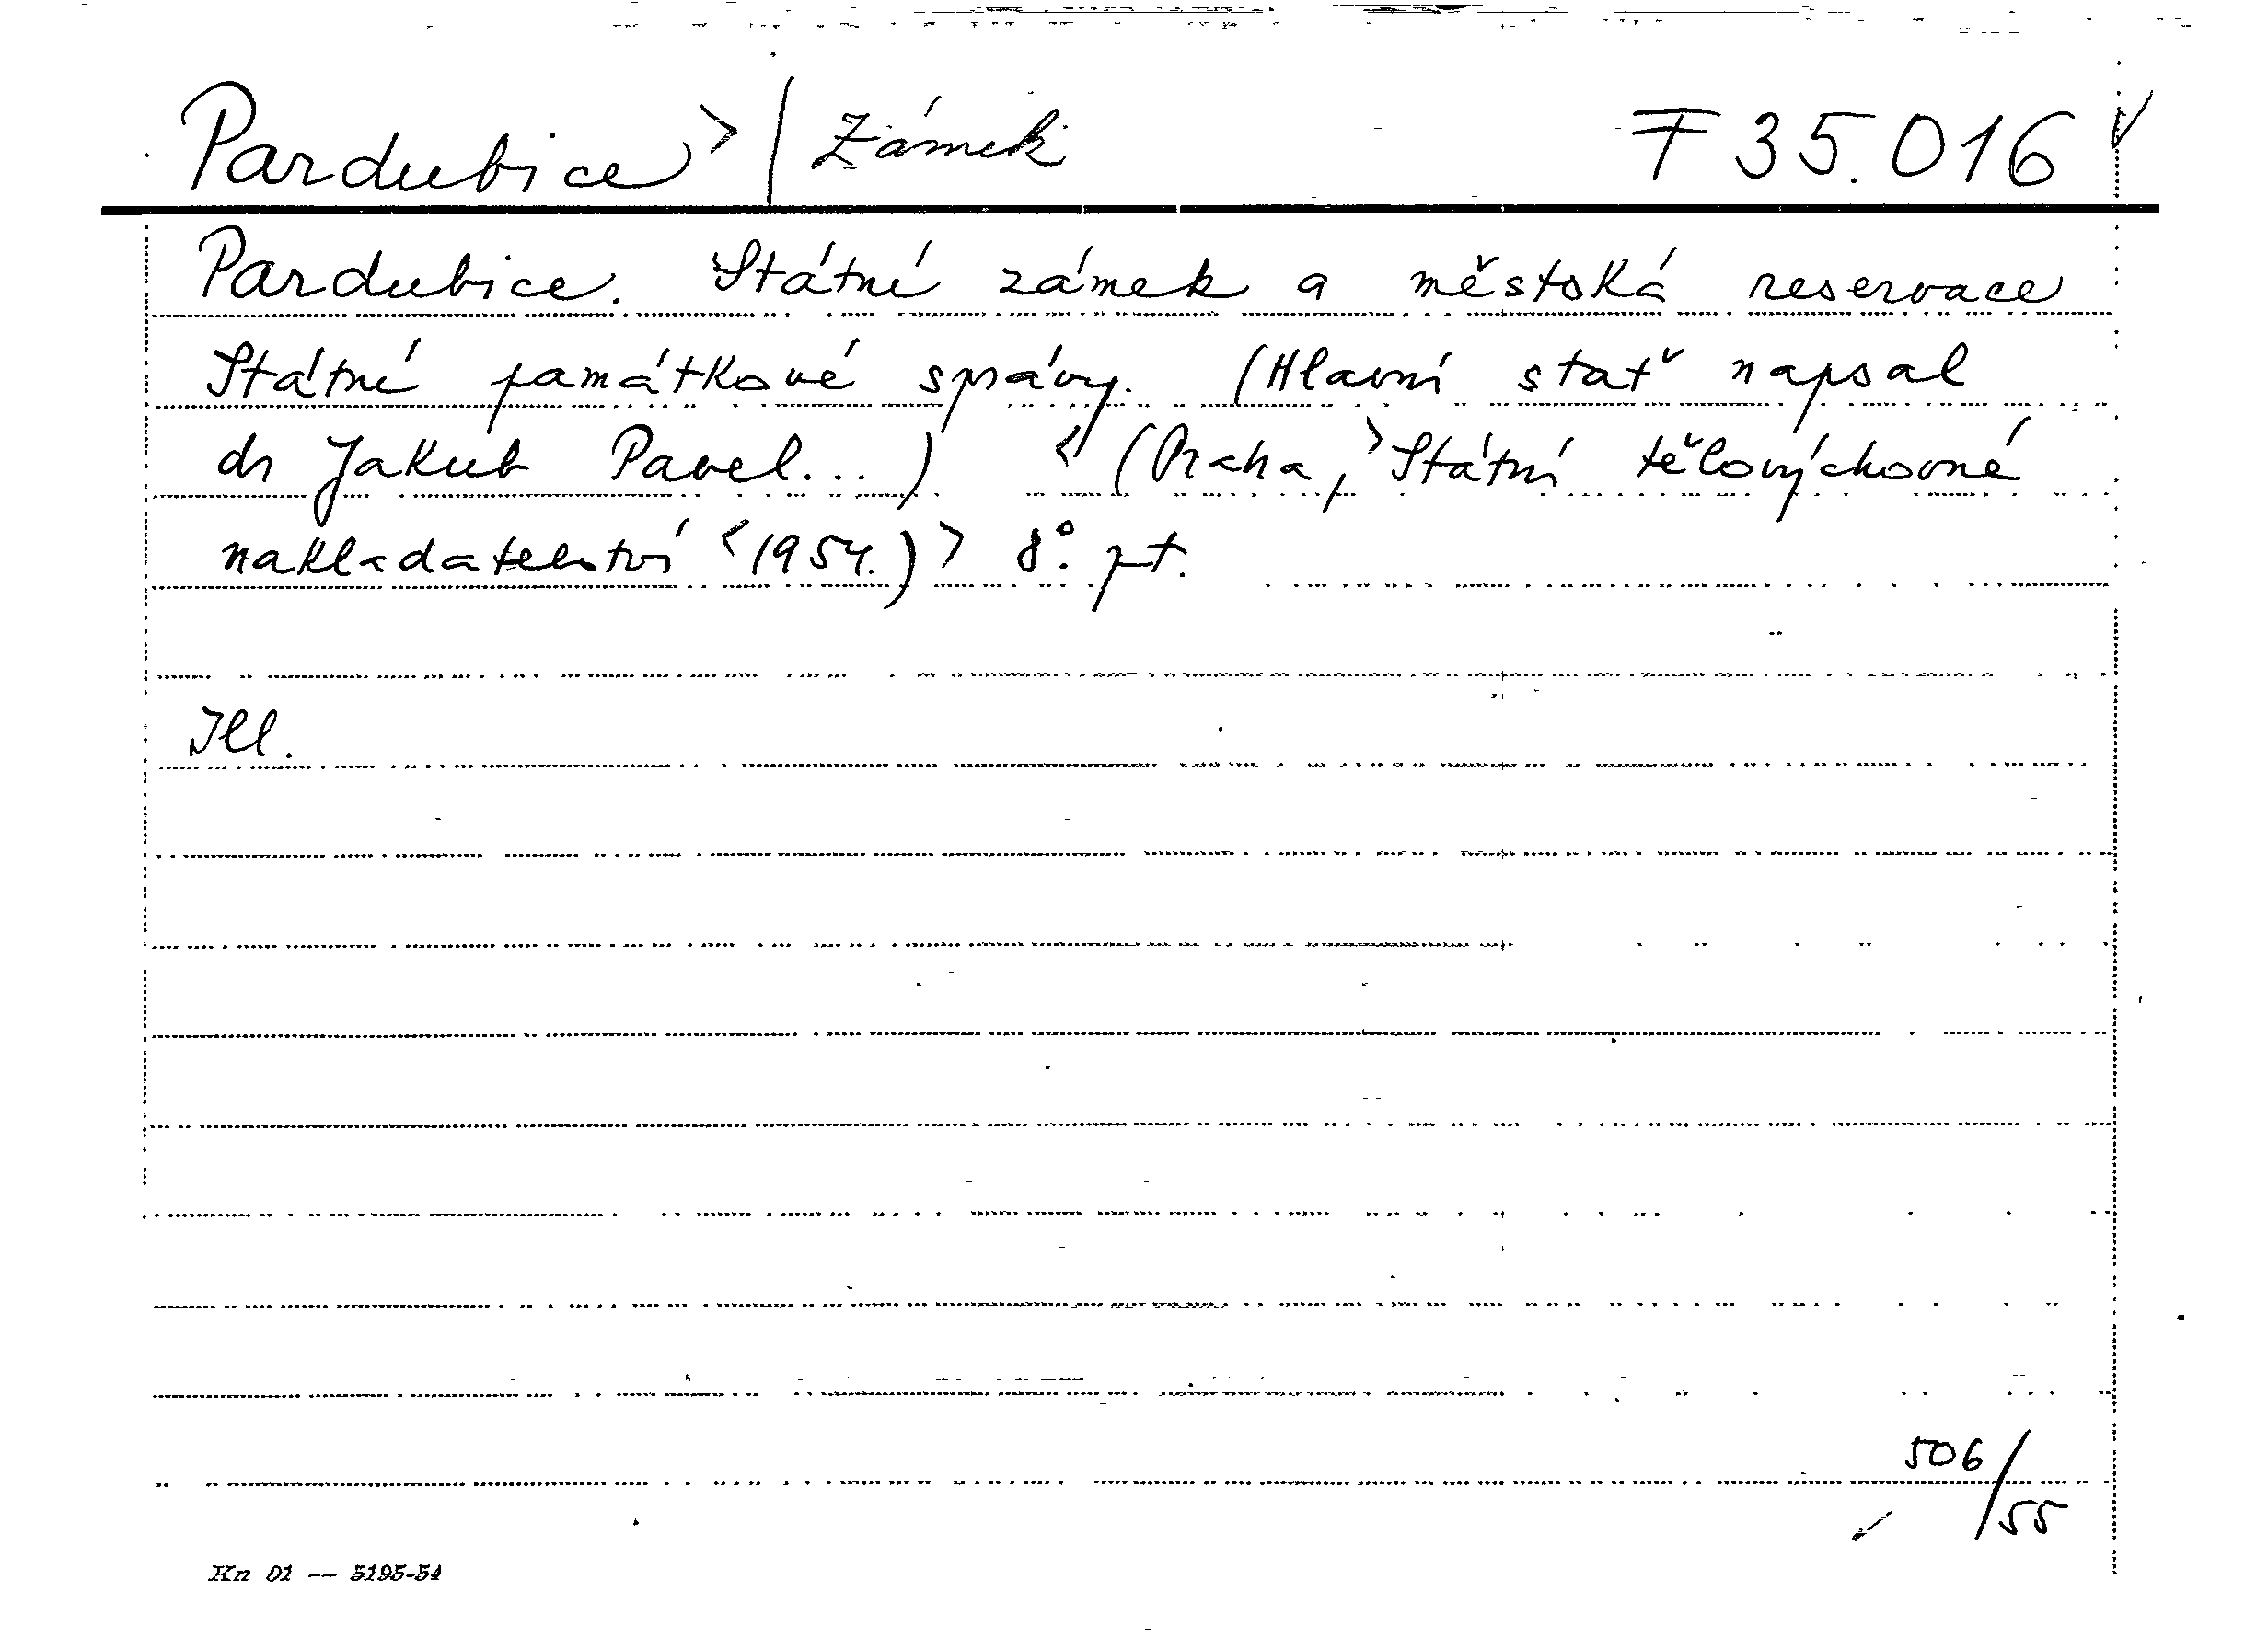 Pardubice > / Zámek F 35.016 v
Pardubice. Státní zámek a městská reservace
Státní památkové správy. (Hlavní stať napsal
dr Jakub Pavel...) < (Praha, > Státní tělovýchovné
nakladatelství < (1954.) > 8°. pt.
Ill.
506/55
Kn 01 — 5195-54